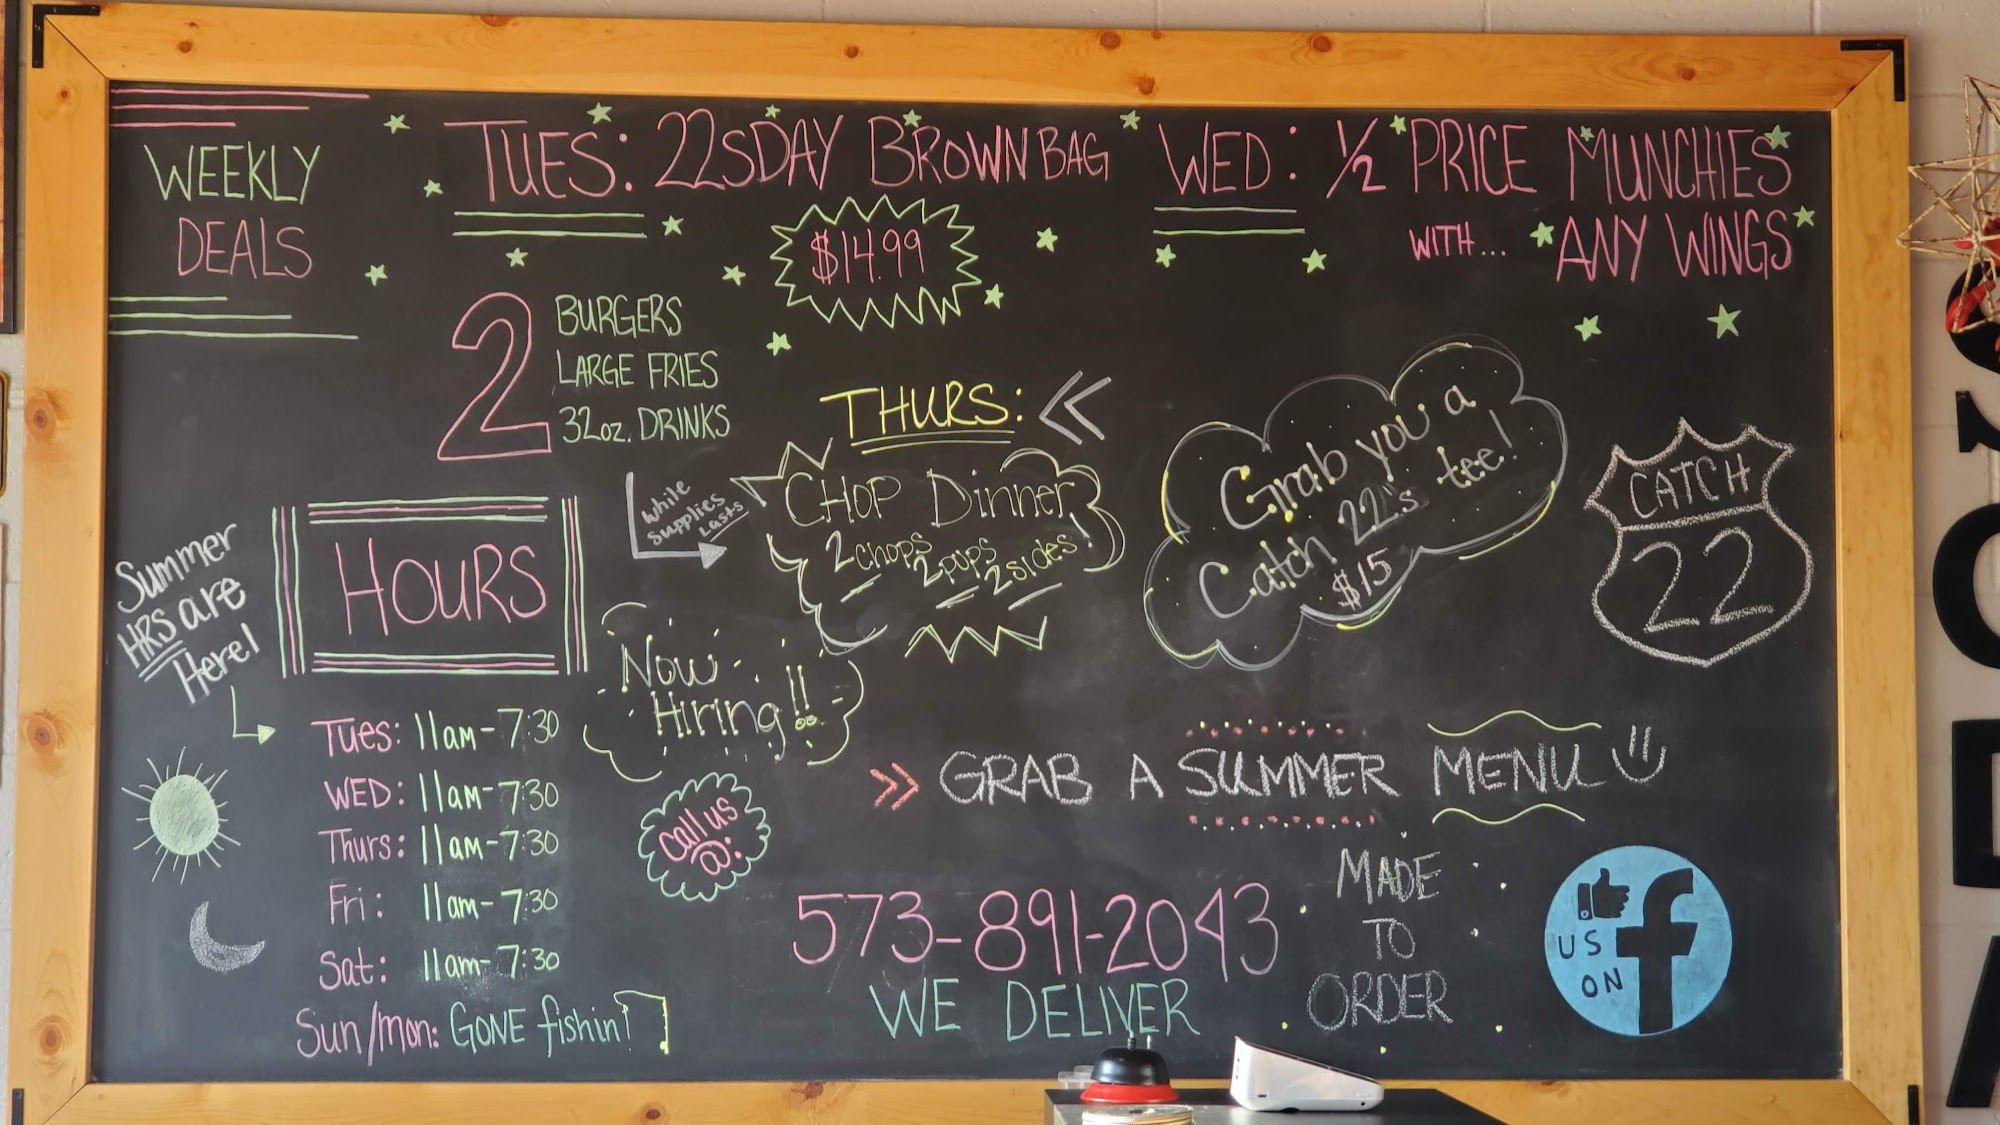 WEEKLY
DEALS
TUES: 22SDAY BROWN BAG
$14.99
2
BURGERS
LARGE FRIES
32oz. DRINKS
WED: 1/2 PRICE MUNCHIES
WITH... ANY WINGS
THURS: <<
while
supplies
lasts
CHOP Dinner
2 chops 2 pups 2 sides!
Grab you a
Catch 22's tee!
$15
CATCH
22
Summer
HRS are
Here!
HOURS
Tues: 11am-7:30
WED: 11am-7:30
Thurs: 11am-7:30
Fri: 11am-7:30
Sat: 11am-7:30
Sun/mon: GONE fishin'!
Now
Hiring!!
call us
@:
>> GRAB A SUMMER MENU
573-891-2043
WE DELIVER
MADE
TO
ORDER
US
ON
f
SODA